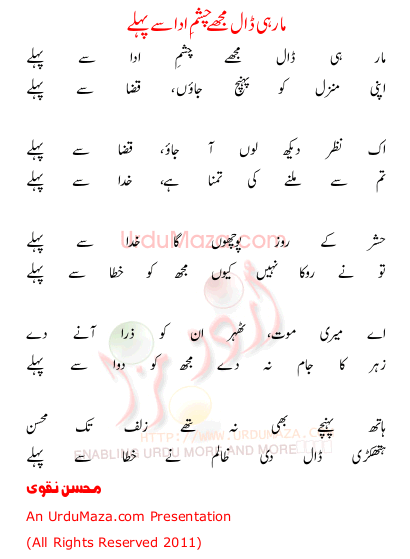 مار ہی ڈال مجھے چشمِ ادا سے پہلے
مار ہی ڈال مجھے چشمِ ادا سے پہلے
اپنی منزل کو پہنچ جاؤں، قضا سے پہلے
اک نظر دیکھ لوں آ جاؤ، قضا سے پہلے
تم سے ملنے کی تمنا ہے، خدا سے پہلے
حشر کے روز پوچھوں گا خدا سے پہلے
UrduMaza.com
تو نے روکا نہیں کیوں مجھ کو خطا سے پہلے
اے میری موت، ٹھہر ان کو ذرا آنے دے
زہر کا جام نہ دے مجھ کو دوا سے پہلے
ہاتھ پہنچے بھی نہ تھے زلف تک محسن
HTTP://WWW.URDUMAZA.COM
ہتھکڑی ڈال دی ظالم نے خطا سے پہلے
ENABLING URDU MORE AND MORE
محسن نقوی
An UrduMaza.com Presentation
(All Rights Reserved 2011)